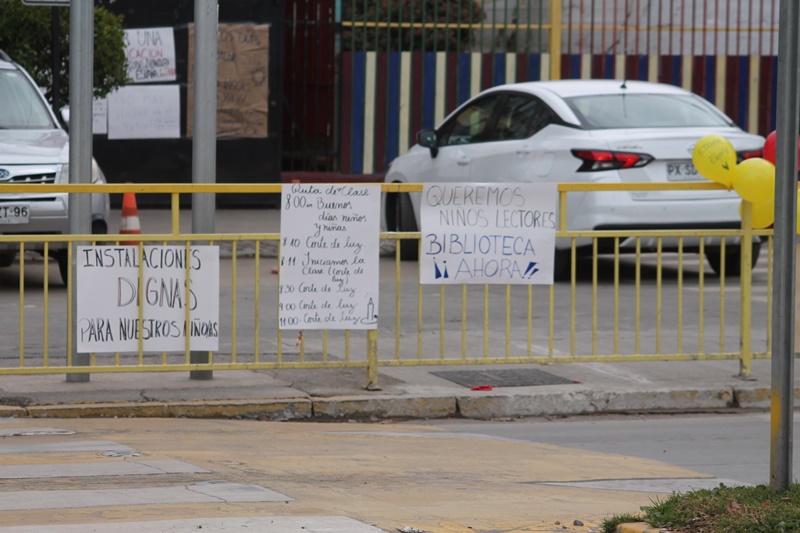 ER UNA
CACIÓN
INSTALACIONES
DIGNAS
PARA NUESTROS NIÑO/AS
Ruta de Clase
8:00 am Buenos
días niños
y niñas
8:10 Corte de luz
8:11 Iniciamos la
Clase (Corte de
luz)
8:30 Corte de luz
9:00 Corte de luz
11:00 Corte de luz
QUEREMOS
NIÑOS LECTORES
BIBLIOTECA
¡¡ AHORA!!
PX SD
ZT 96